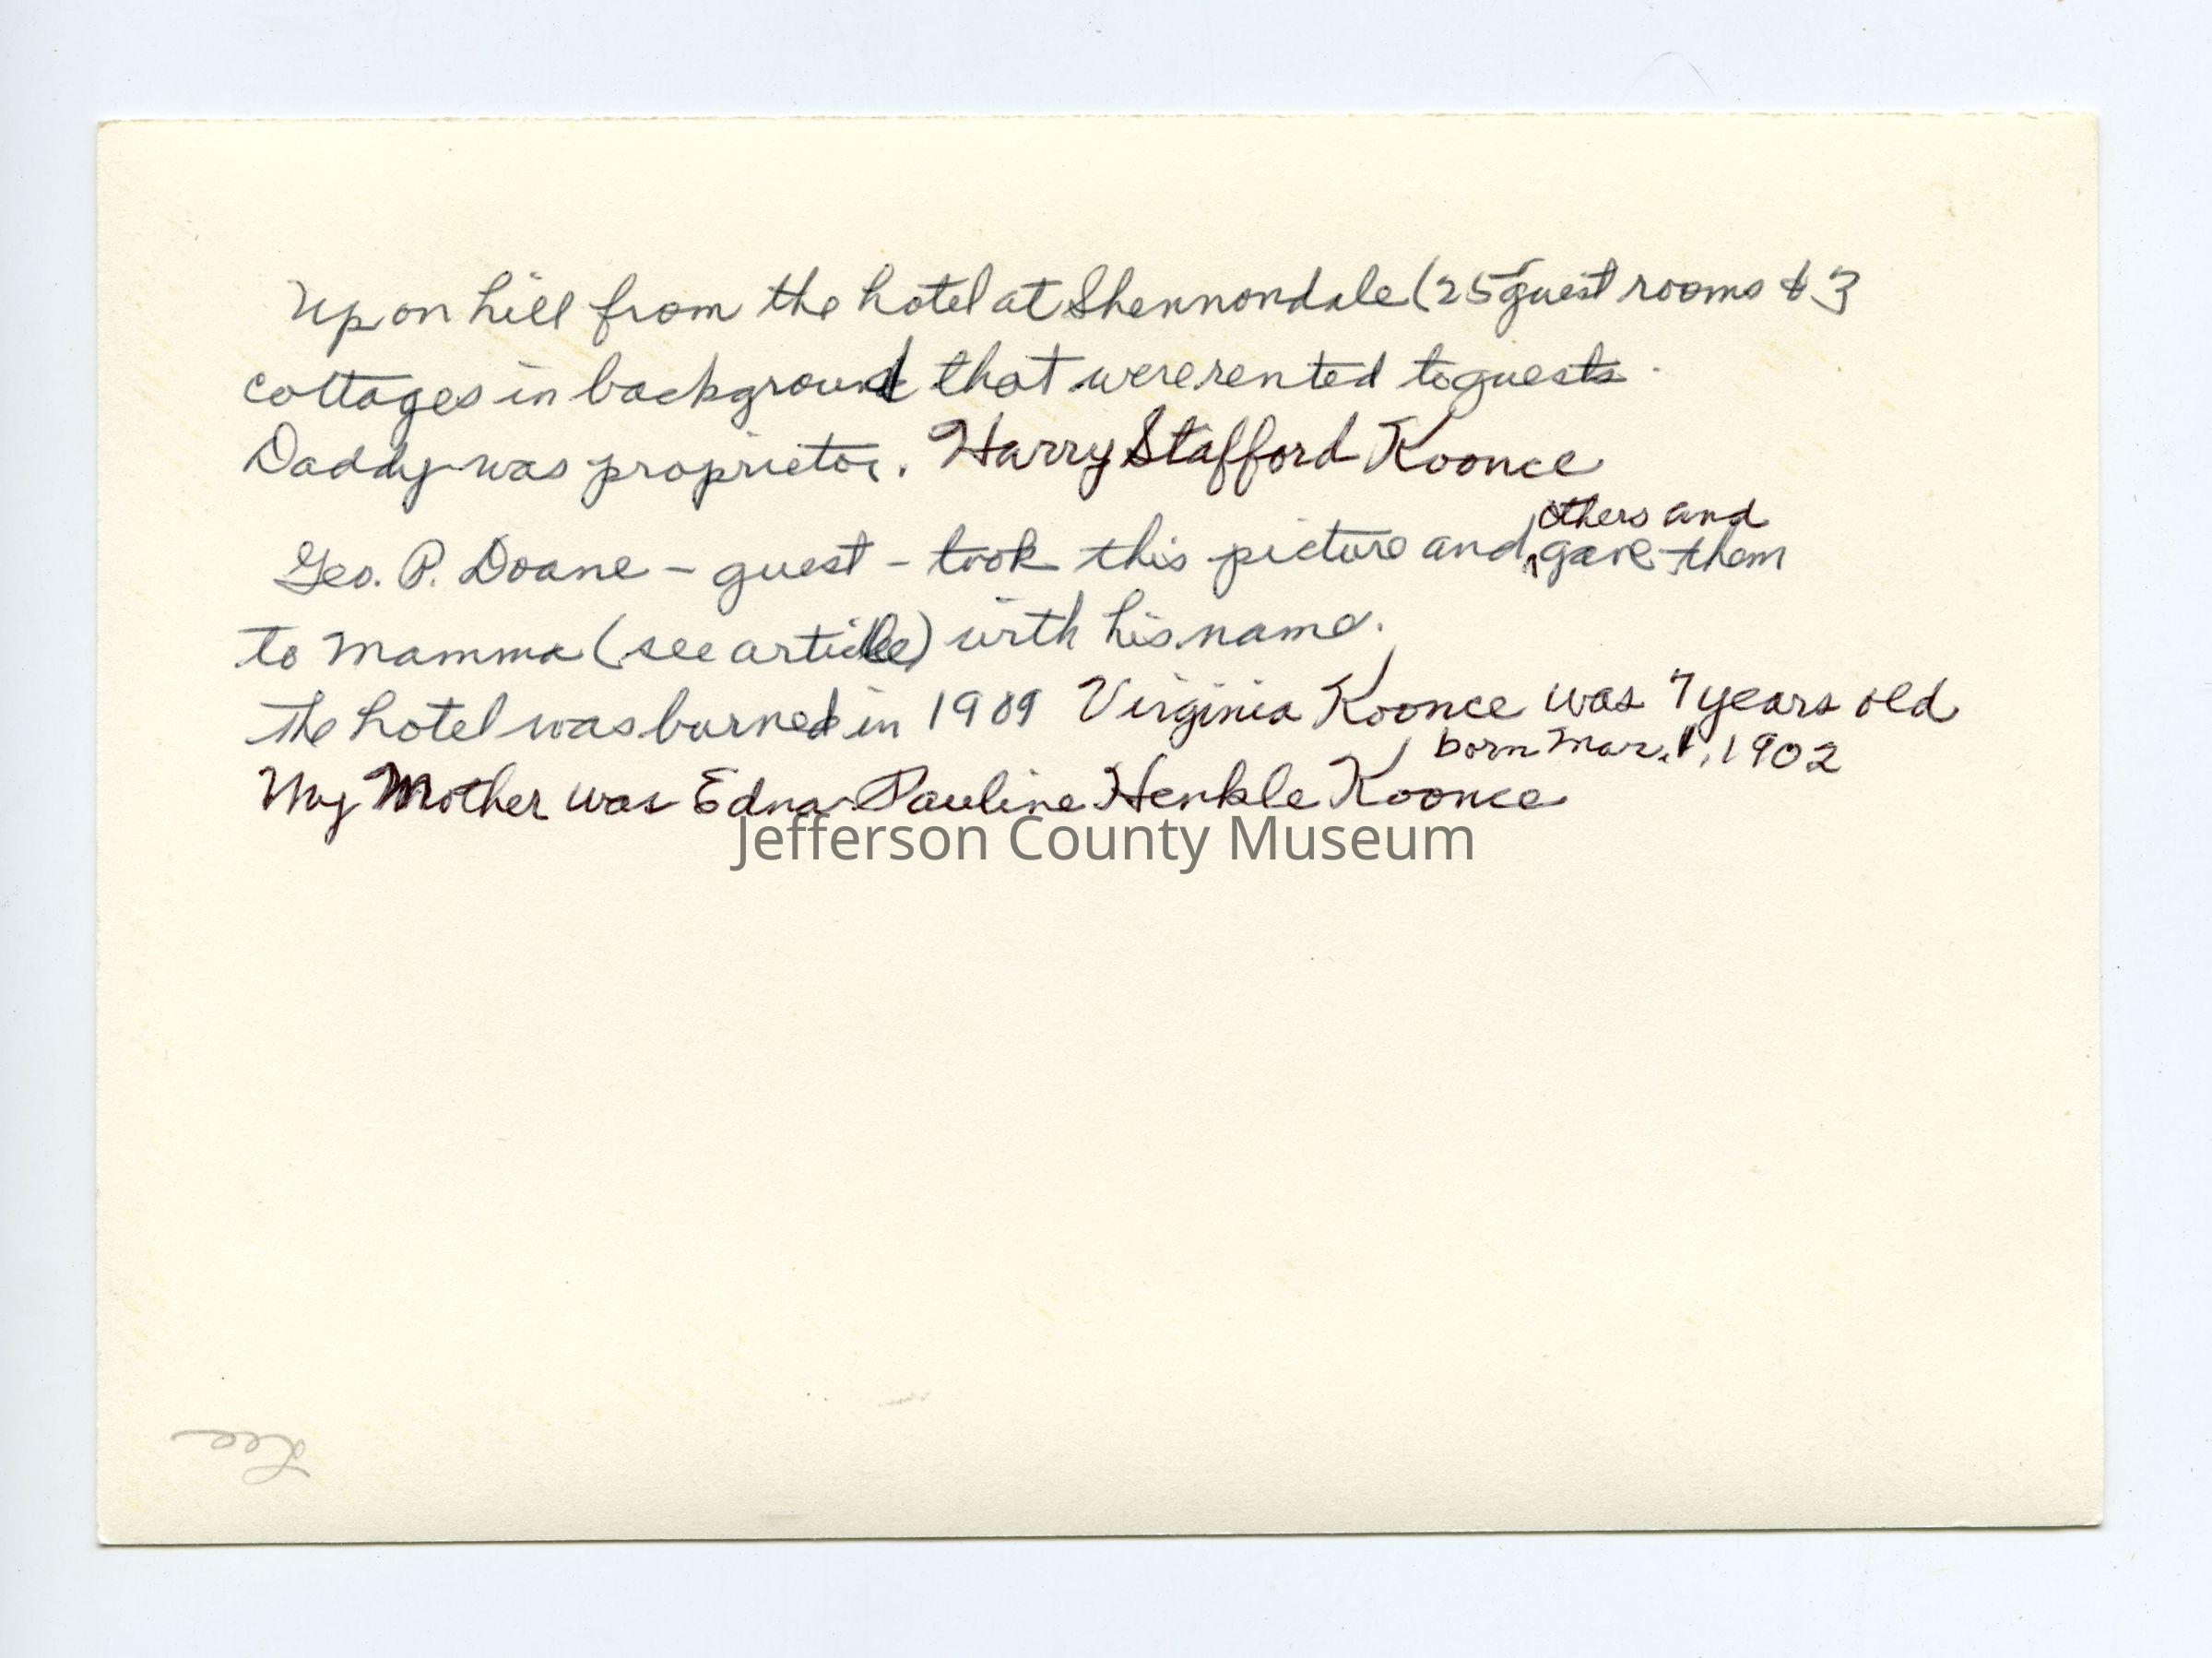 Up on hill from the hotel at Shennondale (25 guest rooms & 3
cottages in background that were rented to guests.
Daddy was proprietor. Harry Stafford Koonce
others and
Geo. P. Doane - guest - took this picture and, gave them
to Mamma (see article) with his name.
the hotel was burned in 1909 Virginia Koonce was 7 years old
born Mar. 1, 1902
My Mother was Edna Pauline Henkle Koonce
Jefferson County Museum
Lee